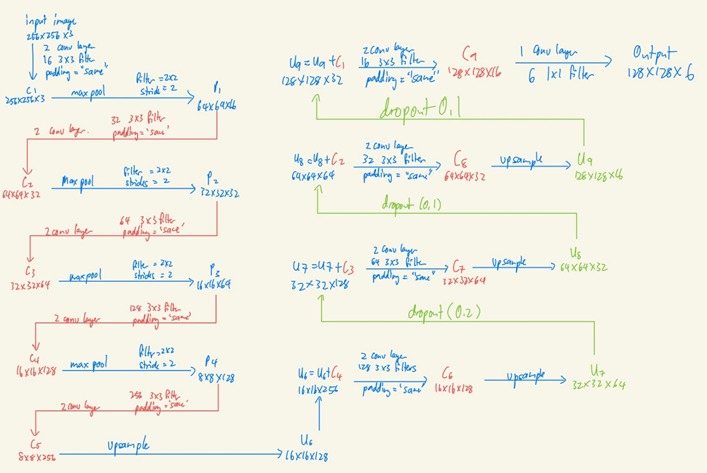 input image
256×256×3
2 conv layer
16 3×3 filter
padding="same"
C1
256×256×3
maxpool
filter=2×2
stride=2
P1
64×64×16
32 3×3 filter
2 conv layer.
padding="same"
C2
64×64×32
maxpool
filter=2×2
strides=2
P2
32×32×32
64 3×3 filter
2 conv layer
padding="same"
C3
32×32×64
maxpool
filter=2×2
strides=2
P3
16×16×64
128 3×3 filter
2 conv layer
padding="same"
C4
16×16×128
maxpool
filter=2×2
stride=2
P4
8×8×128
256 3×3 filter
2 conv layer
padding="same"
C5
8×8×256
upsample
U6
16×16×128
U6=U6+C4
16×16×256
2 conv layer
128 3×3 filters
padding="same"
C6
16×16×128
upsample
U7
32×32×64
dropout (0.2)
U7=U7+C3
32×32×128
2 conv layer
64 3×3 filters
padding="same"
C7
32×32×64
upsample
U8
64×64×32
dropout (0.1)
U8=U8+C2
64×64×64
2 conv layer
32 3×3 filter
padding="same"
C8
64×64×32
upsample
U9
128×128×16
dropout 0.1
U9=U9+C1
128×128×32
2 conv layer
16 3×3 filter
padding="same"
C9
128×128×16
1 conv layer
6 1×1 filter
Output
128×128×6